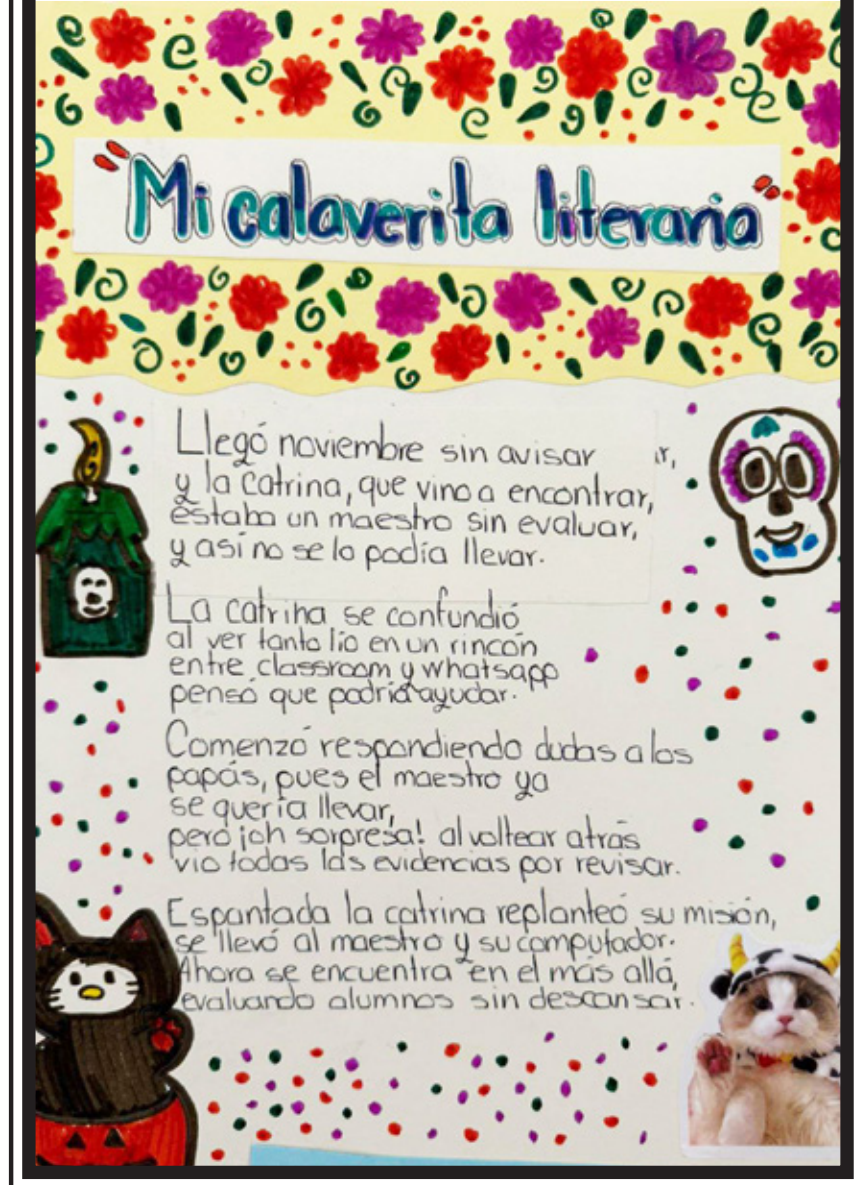 "Mi calaverita literaria"
Llegó noviembre sin avisar
r,
y la Catrina, que vino a encontrar,
estaba un maestro sin evaluar,
y así no se lo podía llevar.
La catrina se confundió
al ver tanto lío en un rincón
entre classroom y whatsapp
pensó que podría ayudar.
Comenzó respondiendo dudas a los
papás, pues el maestro ya
se quería llevar,
pero ¡oh sorpresa! al voltear atrás
vio todas las evidencias por revisar.
Espantada la catrina replanteó su misión,
se llevó al maestro y su computador.
Ahora se encuentra en el más allá,
evaluando alumnos sin descansar.